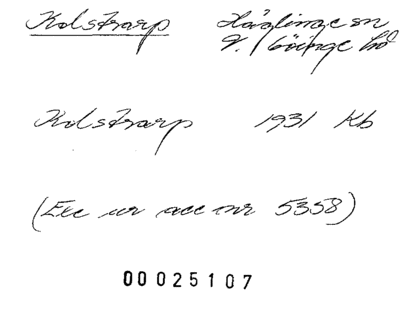 Kolstrarp Häglinge sn
V. Göinge hd
Kolstrarp 1931 Kb
(Exc ur acc nr 5358)
00025107